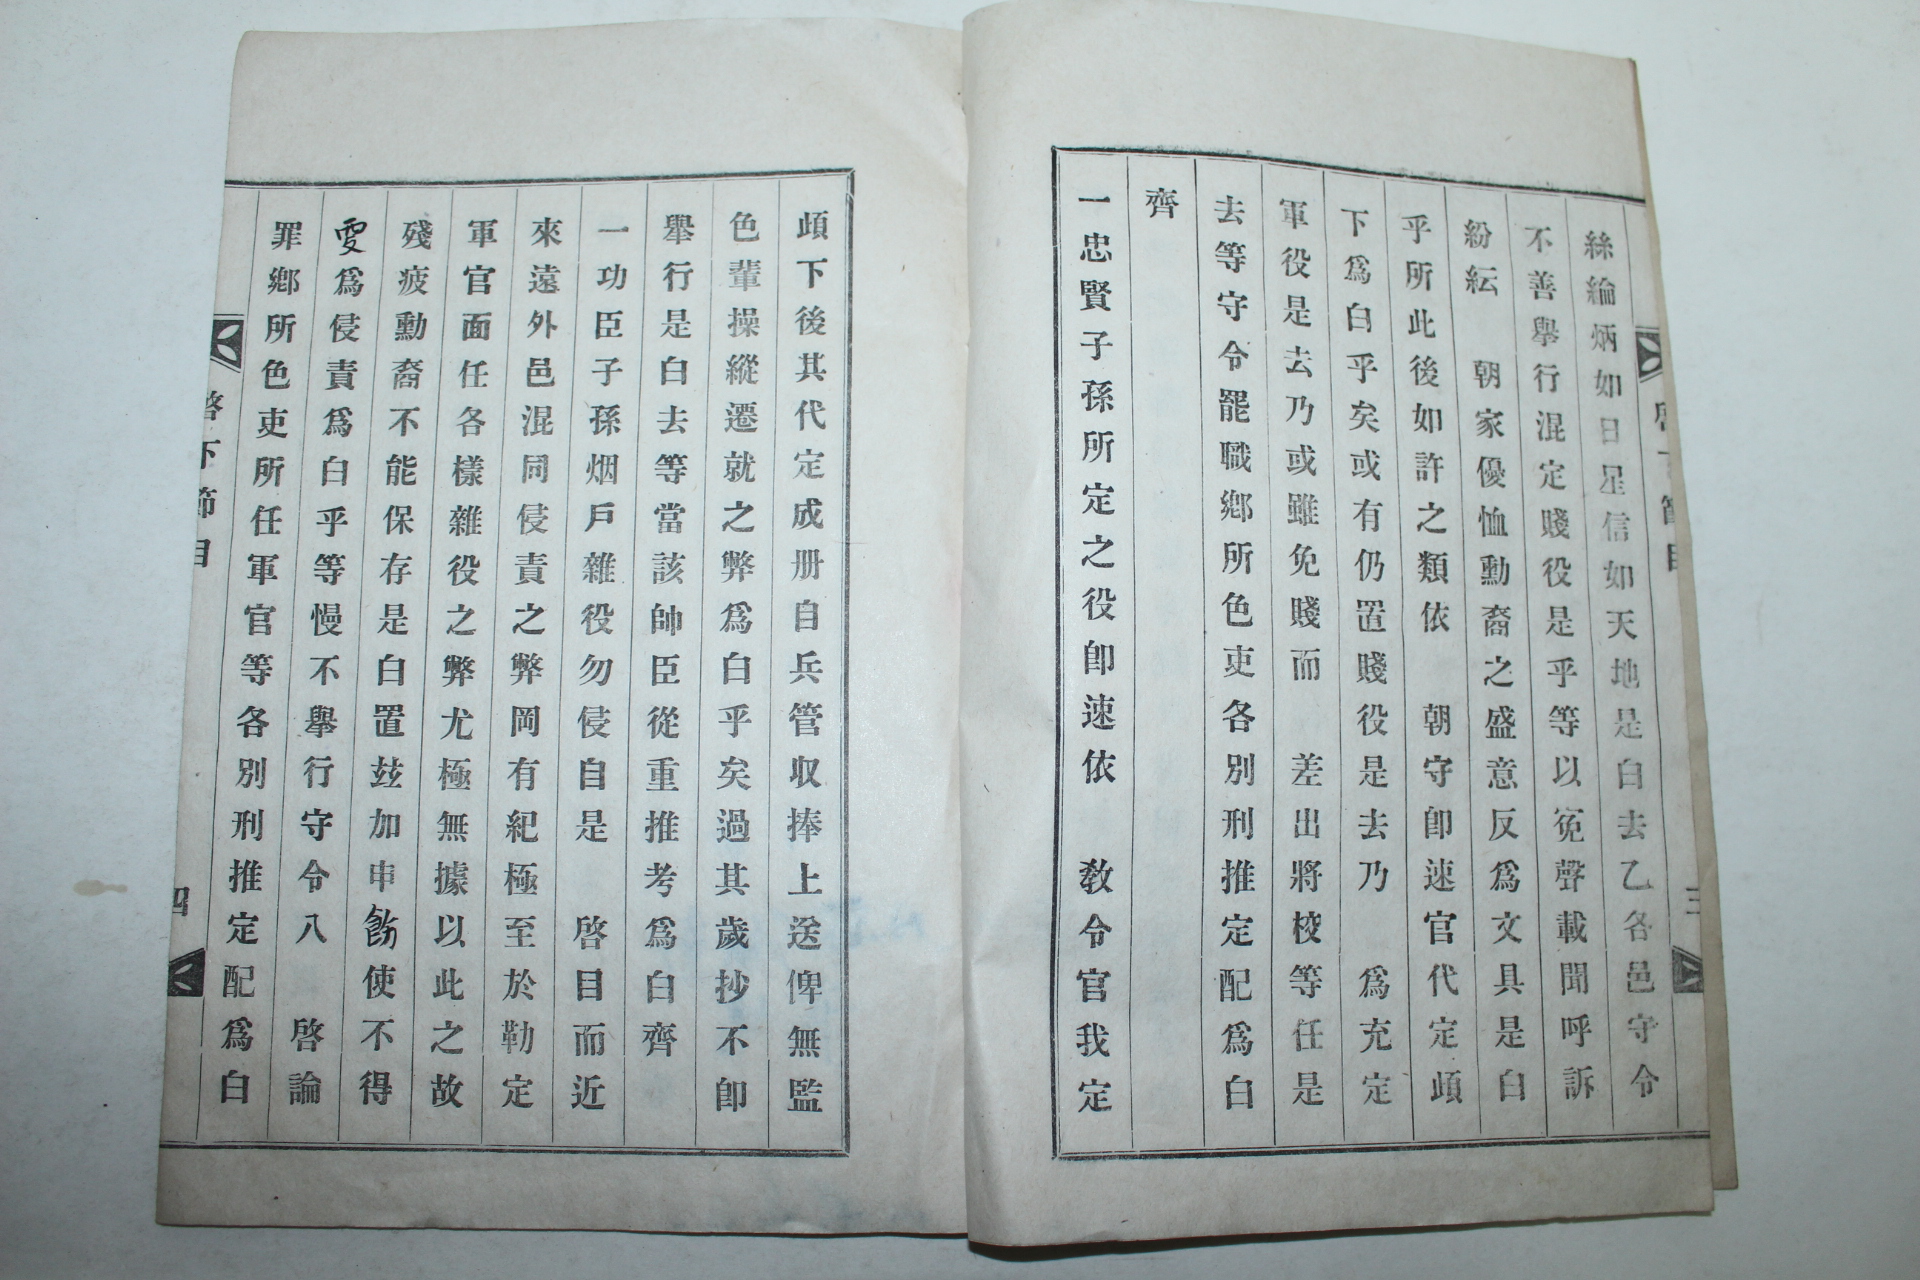 絲綸炳如日星信如天地是白去乙各邑守令
不善擧行混定賤役是乎等以寃聲載聞呼訴
紛紜　朝家優恤勳裔之盛意反爲文具是白
乎所此後如許之類依　朝守卽速官代定頉
下爲白乎矣或有仍置賤役是去乃　爲充定
軍役是去乃或雖免賤而　差出將校等任是
去等守令罷職鄕所色吏各別刑推定配爲白
齊
一忠賢子孫所定之役卽速依　敎令官我定
三
頉下後其代定成册自兵管收捧上送俾無監
色輩操縱遷就之弊爲白乎矣過其歲抄不卽
擧行是白去等當該帥臣從重推考爲白齊
一功臣子孫烟戶雜役勿侵自是　啓目而近
來遠外邑混同侵責之弊岡有紀極至於勒定
軍官面任各樣雜役之弊尤極無據以此之故
殘疲勳裔不能保存是白置玆加申飭使不得
更爲侵責爲白乎等慢不擧行守令八　啓論
罪鄕所色吏所任軍官等各別刑推定配爲白
啓下節目
四